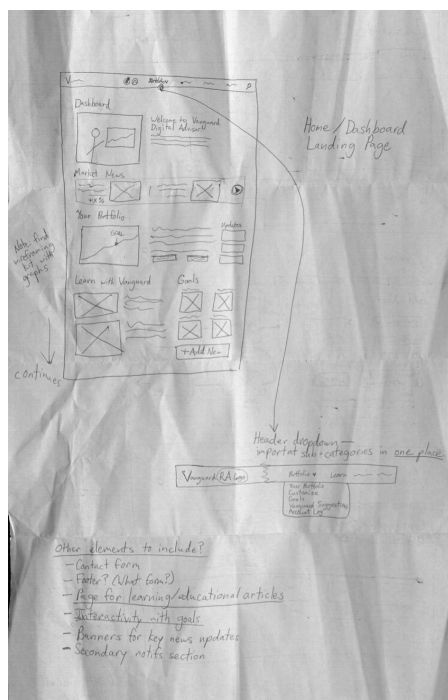 Portfolio
Dashboard
Welcome to Vanguard
Digital Advisor!
Home / Dashboard
Landing Page
Market News
+x%
Your Portfolio
Updates
GOAL
Note: find
wireframing
kit with
graphs
Learn with Vanguard
Goals
+ Add New
continues
Header dropdown -
importat sub-categories in one place
Vanguard RA Logo
Portfolio
Learn
Your Portfolio
Customize
Goals
Vanguard Suggestions
Account Log
Other elements to include?
- Contact form
- Footer? (What form?)
- Page for learning/educational articles
- Interactivity with goals
- Banners for key news updates
- Secondary notifs section